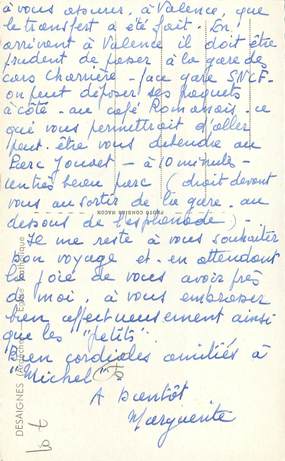 à vous assurer, à Valence, que
le transfert a été fait. En
arrivant à Valence il doit être
prudent de passer à la gare de
cars Charrière - face gare SNCF -
on peut déposer ses paquets
à côté - au café Romanais - ce
qui vous permettrait d'aller
peut-être vous détendre au
Parc Jouvet - à 10 minutes -
un très beau parc (droit devant
vous au sortir de la gare - au
dessous de l'esplanade) -
Je me reste à vous souhaiter
bon voyage et - en attendant
la joie de vous avoir près
de moi, à vous embrasser
bien affectueusement ainsi
que les "petits".
Bien cordiales amitiés à
"Michel"
A Bientôt
Marguerite
PHOTO COMBIER MACON
DESAIGNES (Ardèche) - Eglise